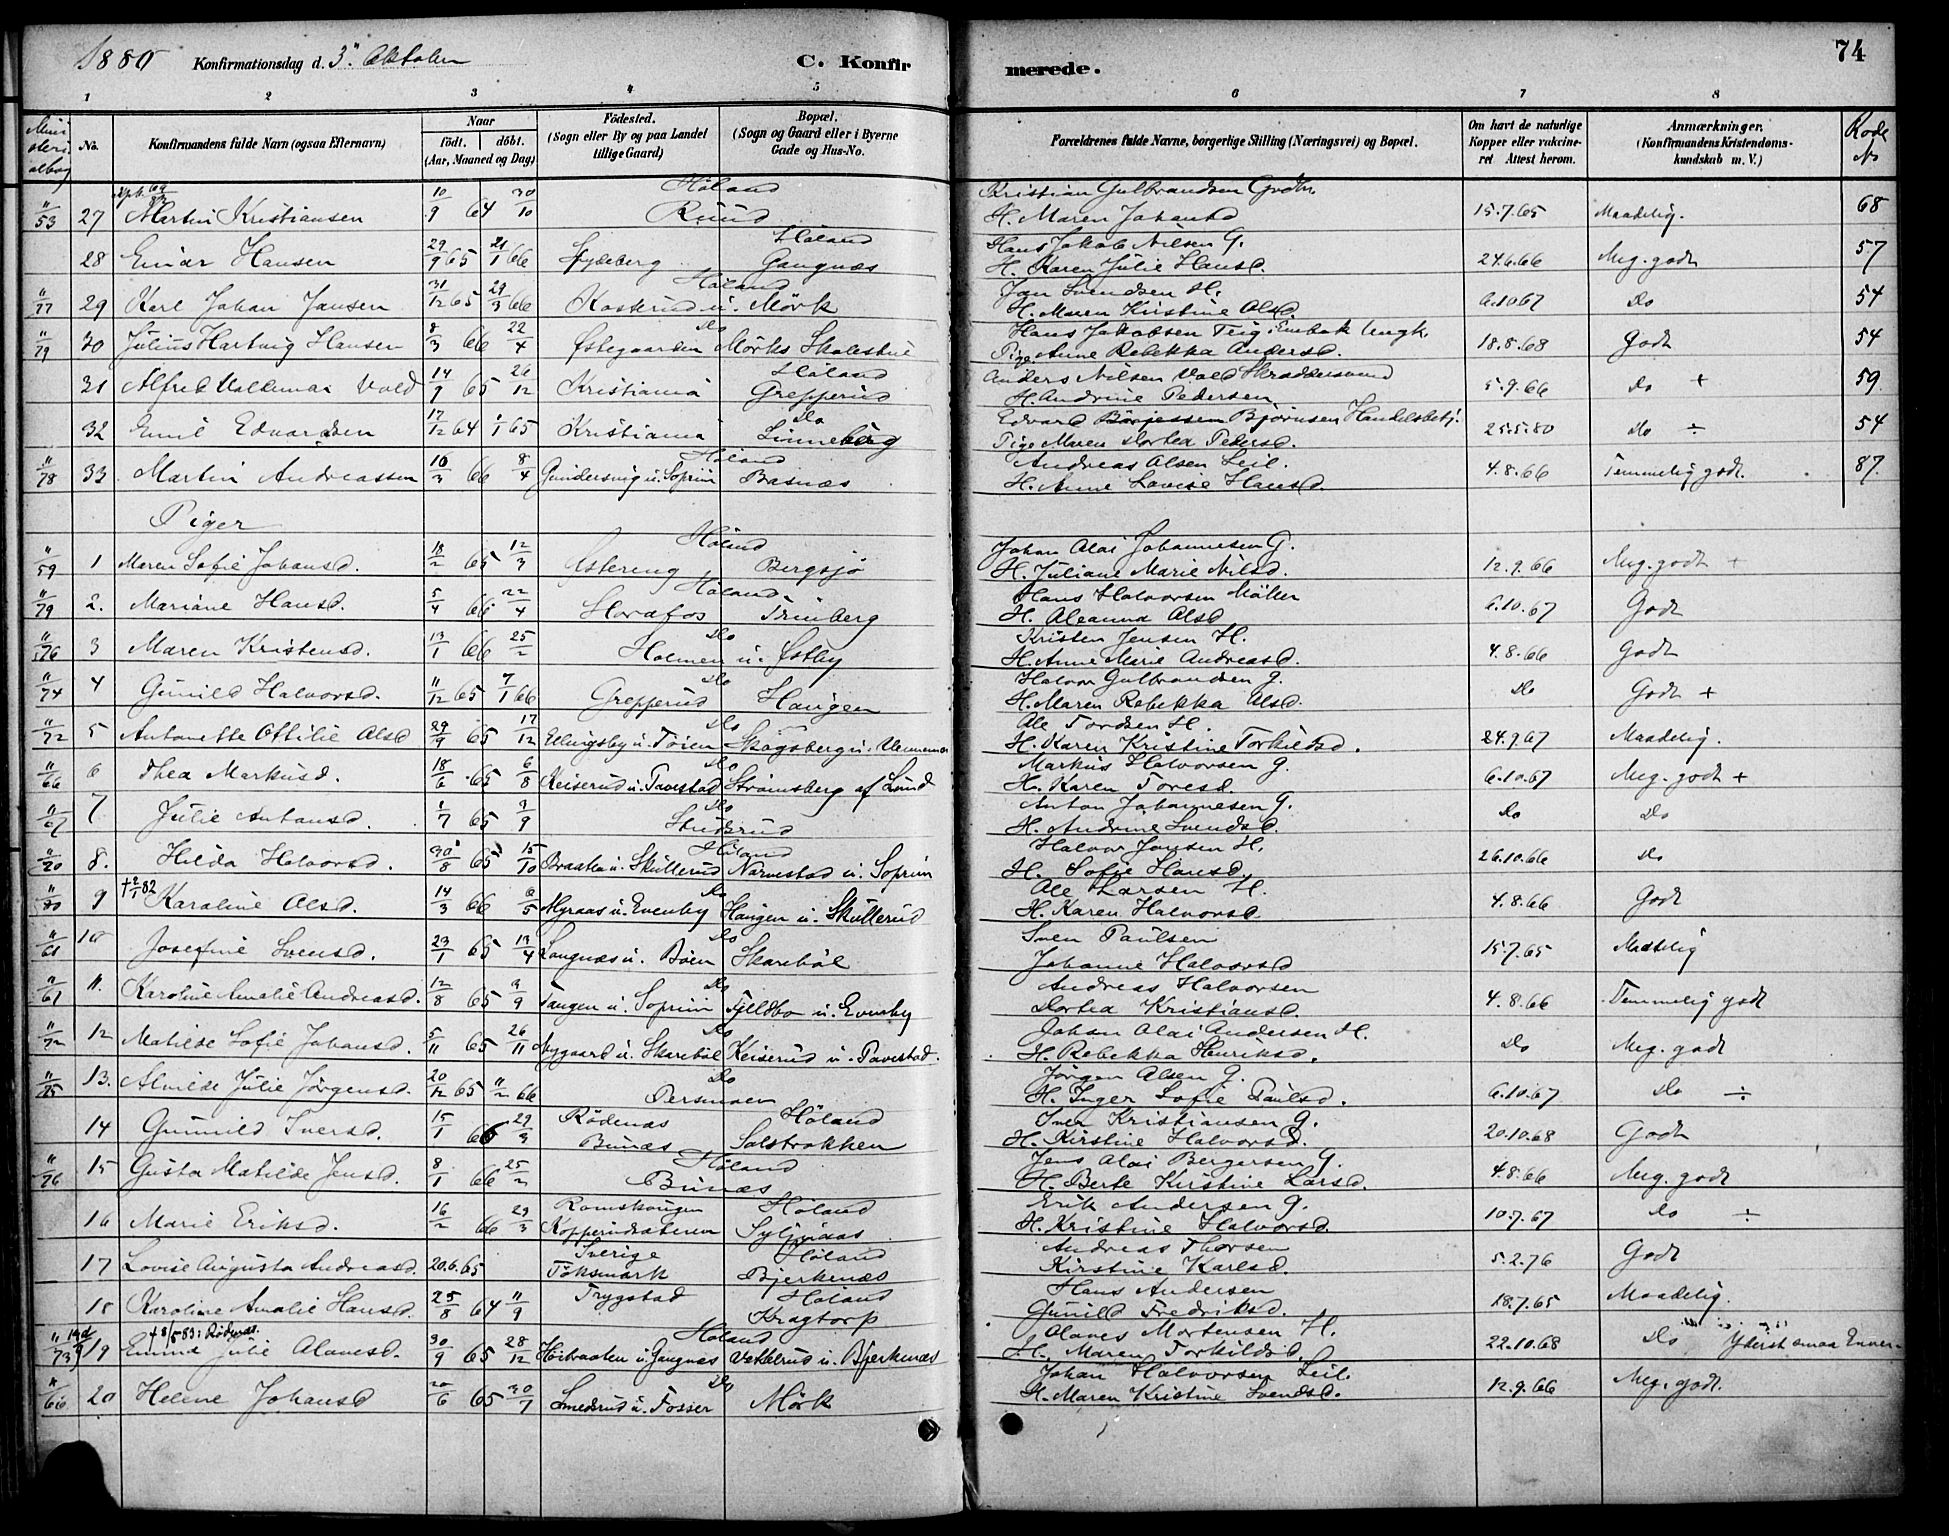 1880 Konfirmationsdag d. 3" Oktober C. Konfir merede. 74
1 2 3 4 5 6 7 8
Ministerialbog No. Konfirmandens fulde Navn (ogsaa Efternavn) Naar født. døbt. (Aar, Maaned og Dag) Fødested. (Sogn eller By og paa Landet tillige Gaard) Bopæl. (Sogn og Gaard eller i Byerne Gade og Hus-No. Forældrenes fulde Navne, borgerlige Stilling (Næringsvei) og Bopæl. Om havt de naturlige Kopper eller vakcineret. Attest herom. Anmærkninger. (Konfirmandens Kristendomskundskab m. V.) Rode No
Høland Kristian Gulbrandsen Grdbr.
"/53 27 Martin Kristiansen 10/9 64 30/10 Ruud H. Maren Johansd 15.7.65 Maadelig. 68
Høland Hans Jakob Nilsen G.
28 Einar Hansen 29/9 65 21/1 66 Spydeberg Gangnæs H. Karen Julie Hansd. 24.6.66 Meg. godt 57
Høland Jan Svendsen H.
"/77 29 Karl Johan Jansen 31/12 65 29/3 66 Kosterud u. Mørk H. Maren Kristine Olsd 6.10 67 Do 54
Do Hans Jakobsen Teig i Enebak Ungk.
"/79 30 Julius Hartvig Hansen 8/3 66 22/4 Østegaarden Mørks Skolestue Pige Anne Rebekka Andersd. 18.8.68 Godt 54
Høland Anders Nilsen Vold Skræddersvend
31 Alfred Valdemar Vold 14/9 65 26/12 Kristiania Grepperud H. Andrine Pedersen 5.9.66 Do + 59.
Do Edvard Børjessen Bjørnsen Handelsbetj.
32 Emil Edvardsen 17/12 64 1/1 65 Kristiania Linneberg Pige Maren Dortea Pedersd. 25.5.80 Do ÷ 54
Høland Andreas Olsen Leil.
"/78 33 Martin Andreassen 16/3 66 8/4 Gundersvig u. Soprim Basnæs H. Anne Lovise Hansd. 4.8.66 Temmelig godt. 87.
Piger
Høland Johan Olai Johannesen G.
"/59 1 Maren Sofie Johansd. 18/2 65 12/3 Østereng Bergsjø H. Juliane Marie Nilsd. 12.9.66 Meg. godt +
Høland Hans Halvorsen Møller
"/79 2. Mariane Hansd. 5/4 66 22/4 Horafos Trinberg H. Oleanna Olsd 6.10.67 Godt
Do Kristen Jensen H.
"/76 3 Maren Kristensd. 13/1 66 25/2 Holmen u. Østby H. Anne Marie Andreasd. 4.8.66 Godt
Do Halvor Gulbrandsen G.
"/74 4 Gunild Halvorsd. 11/12 65 7/1 66 Grepperud Haugen H. Maren Rebekka Olsd. Do Godt +
Do Ole Tordsen H.
"/72 5 Antonette Ottilie Olsd 29/9 65 17/12 Ellingsby u. Toien Skogsberg u. H. Karen Kristine Torkildsd. 24.9.67 Maadelig.
Do Markus Halvorsen G.
"/66 6 Thea Markusd. 18/6 65 6/8 Keiserud u. Tavestad Strømsberg af Lund H. Karen Toresd. 6.10.67 Meg. godt +
Do Anton Johannesen G.
"/67 7 Julie Antonsd. 1/7 65 3/9 Studsrud H. Andrine Svendsd. Do Do
Høland Halvor Jensen H.
"/70 8. Hilda Halvorsd. 30/8 65 15/10 Braaten u. Skullerud Narvestad u. Soprim H. Sofie Hansd. 26.10.66 Do
† 2/1 82 Do Ole Larsen H.
9 Karoline Olsd. 14/3 66 6/5 Myraas u. Evenby Haugen u. Skullerud H. Karen Halvorsd. 4.8.66 Godt
Do Sven Paulsen
"/61 10 Josefine Svensd. 23/1 65 17/4 Langnæs u. Bøen Skarebøl Johanne Halvorsd 15.7.65 Maadelig
Do Andreas Halvorsen
"/67 11. Karoline Amalie Andreasd. 12/8 65 3/9 Tangen u. Soprim Fjeldbo u. Evenby Dortea Kristiansd 4.8.66 Temmelig godt
Do Johan Olai Andersen H.
"/72 12 Matilde Sofie Johansd. 5/11 65 26/11 Nygaard u. Skarebøl Keiserud u. Tavestad. H. Rebekka Henriksd. Do Meg. godt
Do Jørgen Olsen G.
"/75 13. Alvilde Julie Jørgensd. 20/12 65 11/2 66 Persmoen H. Inger Sofie Paulsd. 6.10.67 Do ÷
Rødenæs Høland Iver Kristiansen G.
14 Gunnild Iversd. 15/1 66 29/3 Bunæs Solstrokken H. Kirstine Halvorsd. 20.10.68 Godt
Høland Jens Olai Bergersen G.
"/76 15 Gusta Matilde Jensd. 8/1 66 25/2 Bunæs H. Berte Kirstine Larsd. 4.8.66 Meg. godt
Romskougen Høland Erik Andersen G.
16 Marie Eriksd. 16/2 66 29/3 Kopperudsæteren Syljuaas H. Kristine Halvorsd. 10.7.67 Do ÷
Sverige Høland Andreas Thorsen
17 Lovise Augusta Andreasd. 20.6.65 Töksmark Bjerkenæs Kirstine Karlsd. 5.2.76 Godt
Trygstad Høland Hans Andersen
18 Karoline Amalie Hansd. 25/8 64 11/9 Kragtorp Gunild Fredriksd. 18.7.65 Maadelig.
† 8/5 83 i Rødenæs. Høland Olaves Mortensen H.
"/73 19 Emma Julie Olavesd. 30/9 65 28/12 Høibraaten u. Gangnæs Vettelrud u. Bjerkenæs H. Maren Torkildsd. 22.10.68 Do Yderst smaa Evner
Do Johan Halvorsen Leil.
"/66 20 Helene Johansd 20/6 65 30/7 Smedsrud u. Fosser Mørk H. Maren Kristine Svendsd. 12.9.66 Meg. godt.